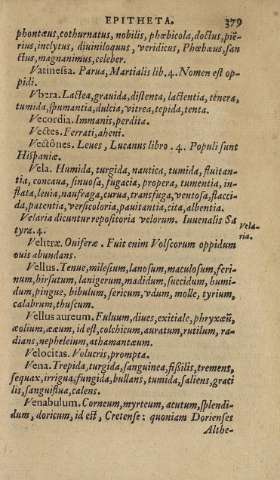 EPITHETA. 379
phontæus, cothurnatus, nobilis, phœbicola, doctus, pië-
rius, inclytus, diuiniloquus, veridicus, Phœbæus, san
ctus, magnanimus, celeber.
Vatinessa. Parua, Martialis lib. 4. Nomen est op-
pidi.
Vbera. Lactea, granida, distenta, lactentia, tenera,
tumida, spumantia, dulcia, vitrea, tepida, tenta.
Vecordia. Immanis, perdita.
Vectes. Ferrati, aheni.
Vectones. Leues, Lucanus libro. 4. Populi sunt
Hispaniæ.
Vela. Humida, turgida, nautica, tumida, fluitan-
tia, concaua, sinuosa, fugacia, propera, tumentia, in-
flata, lenta, naufraga, curua, transfuga, ventosa, flacci-
da, patentia, versicoloria, pauitantia, cita, albentia.
Velaria dicuntur repositoria velorum. Iuuenalis Sa
tyra. 4.
Vela-
ria.
Velitræ. Oniferæ. Fuit enim Volscorum oppidum
ouis abundans.
Vellus. Tenue, milesium, lanosum, maculosum, feri-
num, hirsutum, lanigerum, madidum, succidum, humi-
dum, pingue, bibulum, sericum, vdum, molle, tyrium,
calabrum, thuscum.
Vellus aureum. Fuluum, diues, exitiale, phryxæū,
æolium, ææum, id est, colchicum, auratum, rutilum, ra-
dians, nepheleium, athamantæum.
Velocitas. Volucris, prompta.
Vena. Trepida, turgida, sanguinea, fissilis, tremens,
sequax, irrigua, fungida, bullans, tumida, saliens, graci
lis, sanguiflua, calens.
Venabulum. Corneum, myrteum, acutum, splendi-
dum, doricum, id est, Cretense: quoniam Dorienses
Althe-